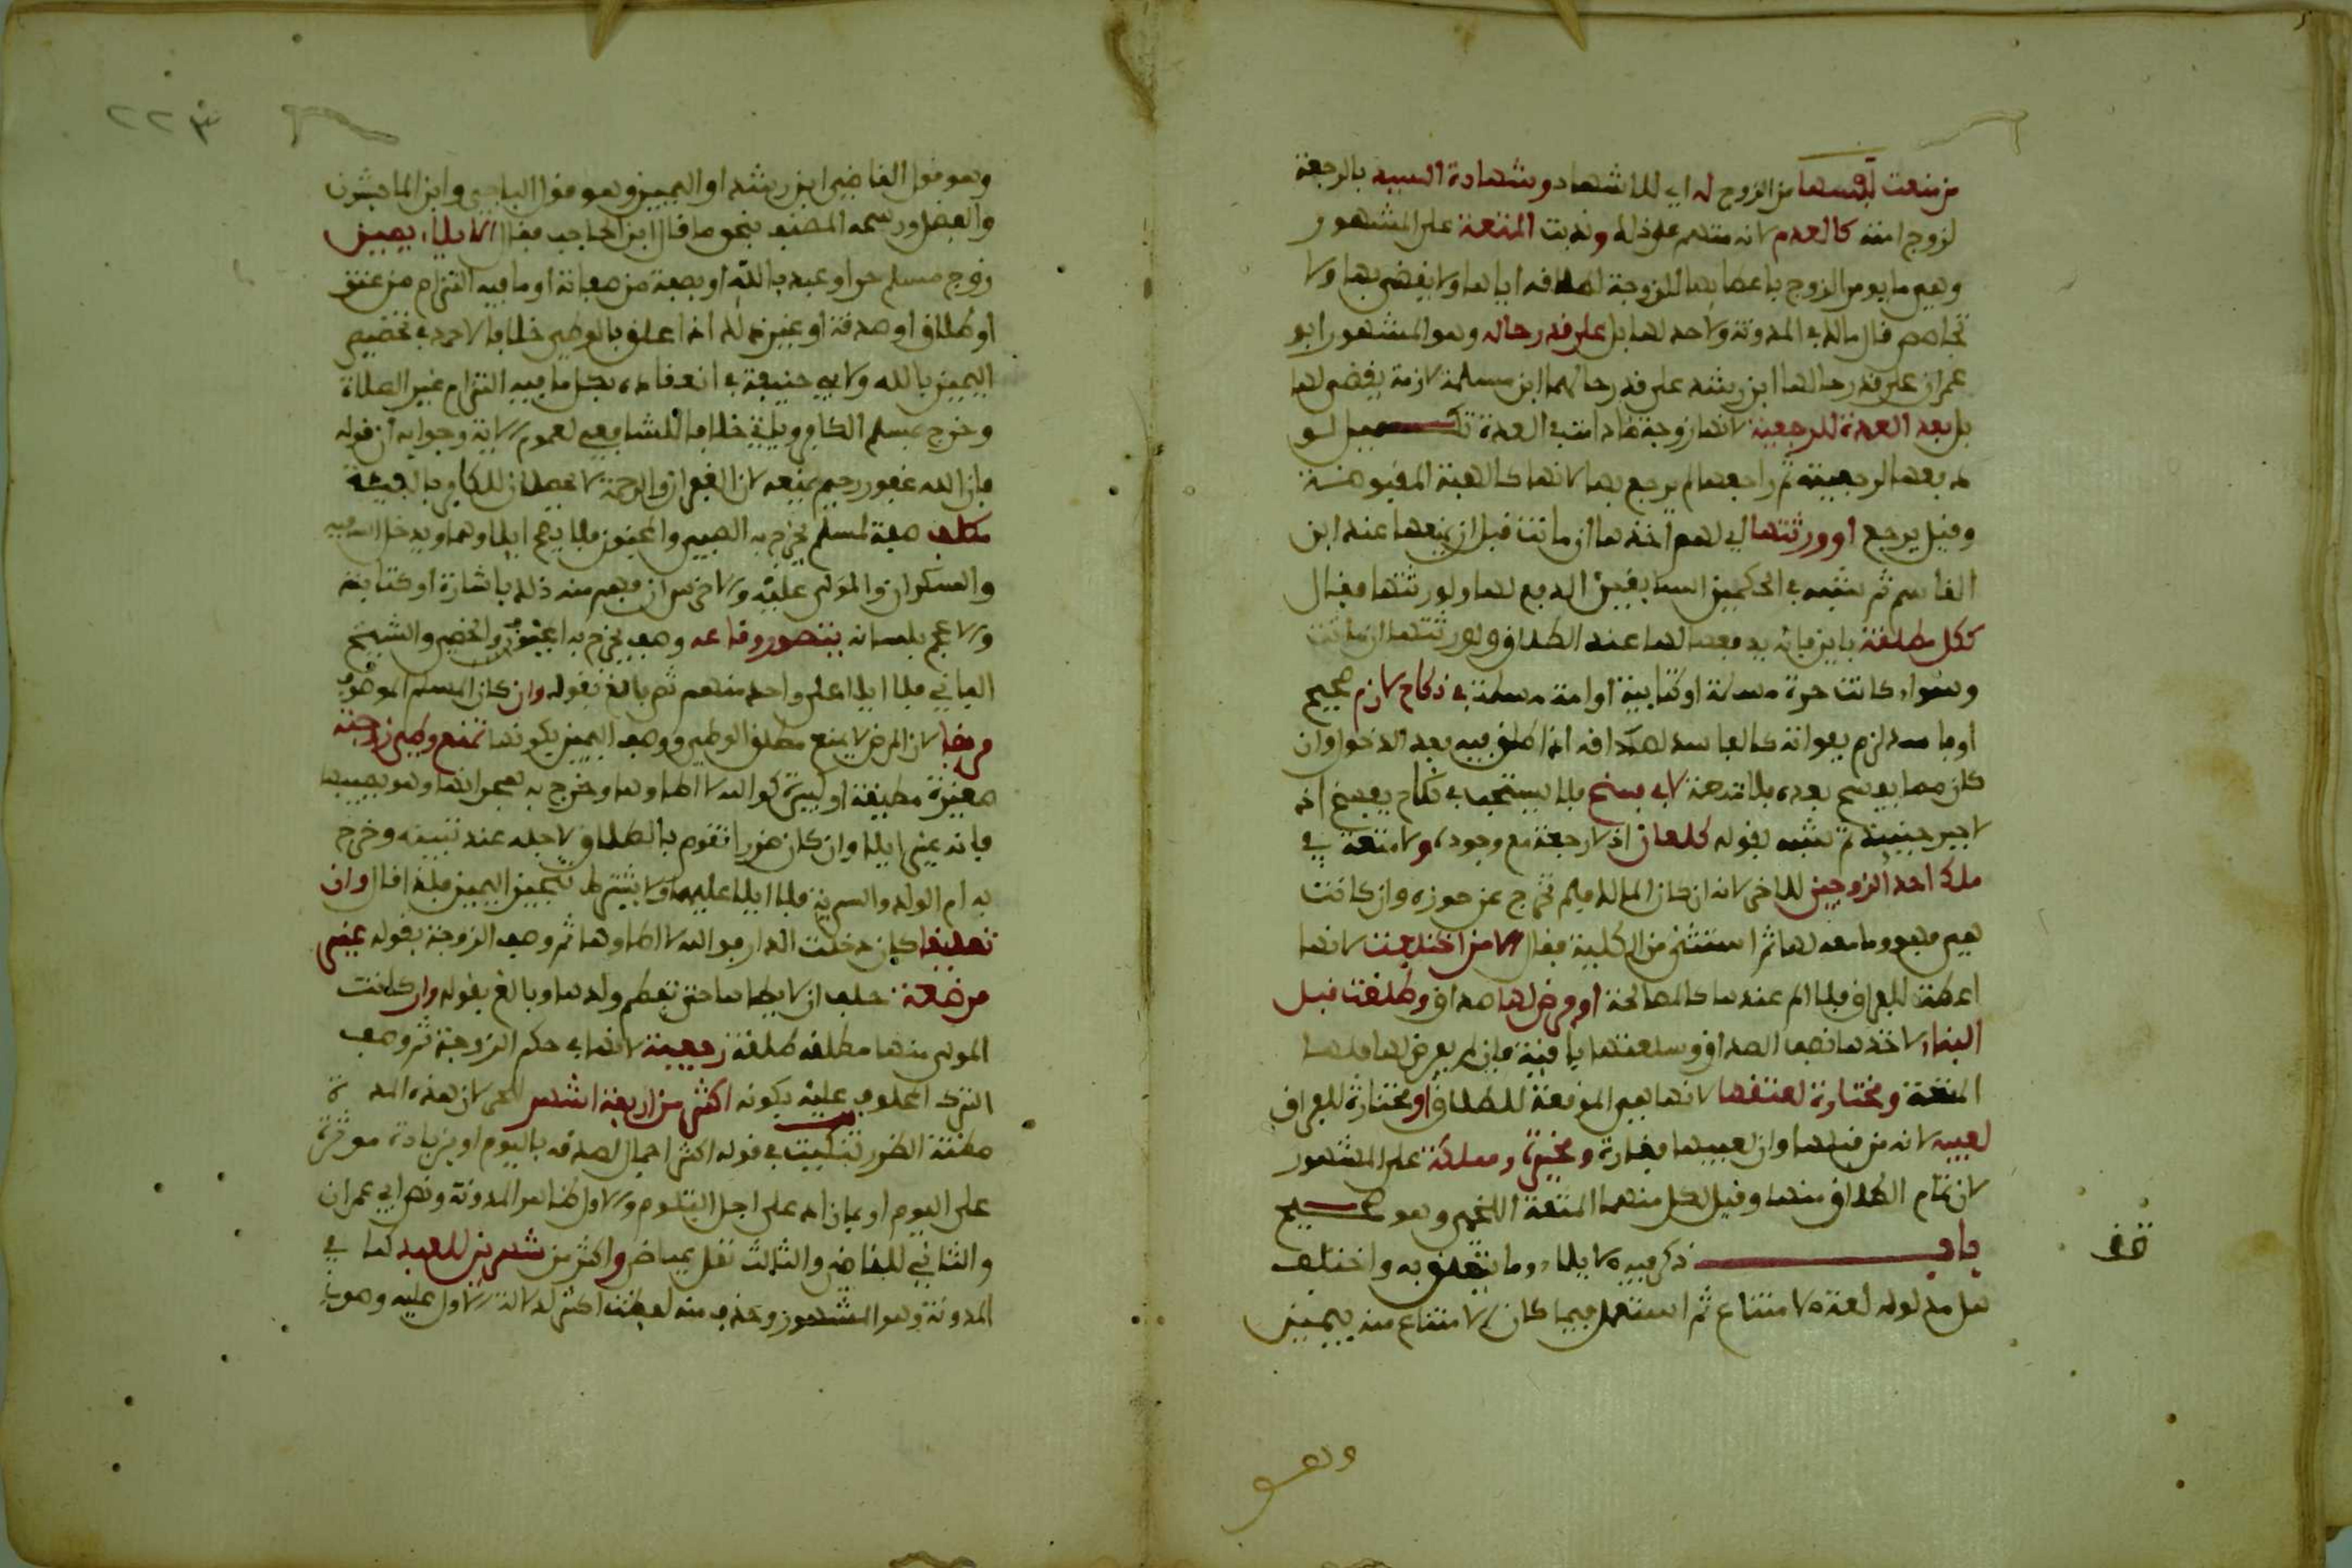 من منعت نفسها من الزوج له اي للاشهاد وشهادة السيد بالرجعة
لزوج امته كالعدم لانه متهم على ذلك وندبت المتعة على المشهور
وهي ما يومر الزوج باعطائها للزوجة لطلاقه اياها ولا يقضى بها ولا
تحاصص قال مالك في المدونة ولا حد لها بل على قدر حاله وهو المشهور ابو
عمران على قدر حالها ابن رشد على قدر حالهما ابن مسلمة لازمة يقضى لها
بل بعد العدة للرجعية لانها زوجة ما دامت في العدة تكميل لو
دفعها لرجعية ثم راجعها لم يرجع بها لانها كالهبة المقبوضة
وقيل يرجع او ورثتها اي لهم اخذها ان ماتت قبل ان يمتعها عند ابن
القاسم ثم شبه في الحكمين السابقين الدفع لها ولورثتها فقال
ككل مطلقة باين فانه يدفعها لها عند الطلاق ولورثتها ان ماتت
وسواء كانت حرة مسلمة او كتابية او امة مسلمة في نكاح لازم صحيح
او فاسد لزم بفواته كالفاسد لصداقه اذا طلق فيه بعد الدخول وان
كان مما يفسخ بعده فلا متعة لا في فسخ فلا يستحب في نكاح يفسخ اذ
لا جبر حينئذ ثم شبه بقوله كلعان اذ لا رجعة مع وجوده ولا متعة في
ملك احد الزوجين للاخر لانه ان كان المالك فلم تخرج عن حوزه وان كانت
هي فهو وما معه لها ثم استثنى من الكلية فقال الا من اختلعت لانها
اعطت للفراق فلا الم عندها كالمصالحة او فرض لها صداق وطلقت قبل
البناء لاخذها نصف الصداق وسلعتها باقية فان لم يفرض لها فلها
المتعة ومختارة لعتقها لانها هي الموقعة للطلاق او مختارة للفراق
لعيبه لانه من قبلها وان لعيبها فغارة ومخيرة ومملكة على المشهور
لان تمام الطلاق منها وقيل لكل منهما المتعة اللخمي وهو صحيح
باب ذكر فيه الايلاء وما يتعلق به واختلف
هل مدلوله لغة الامتناع ثم استعمل فيما كان الامتناع منه بيمين
قف
وهو
٢٢٣
وهو قول القاضي ابن رشد او اليمين وهو قول الباجي وابن الماجشون
والفضل ورسمه المصنف بنحو ما قال ابن الحاجب فقال الايلاء يمين
زوج مسلم حر او عبد بالله او بصفة من صفاته او ما فيه التزام من عتق
او طلاق او صدقة او غير ذلك اذا علق بالوطئ خلافا لاحمد في تخصيص
اليمين بالله ولابي حنيفة في انعقاده بكل ما فيه التزام غير الصلاة
وخرج بمسلم الكافر ويلزم خلافا للشافعي لعموم الاية وجوابه ان قوله
فان الله غفور رحيم يمنعه لان الغفران والرحمة لا يحصلان للكافر بالفيئة
مكلف صفة لمسلم يخرج به الصبي والمجنون فلا يصح ايلاوهما ويدخل السفيه
والسكران والمولى عليه والاخرس ان فهم منه ذلك باشارة او كتابة
والاعجم بلسانه يتصور وقاعه وصف يخرج به المجبوب والخصي والشيخ
الفاني فلا ايلا على واحد منهم ثم بالغ بقوله وان كان المسلم الموصوف
مريضا لان المرض لا يمنع مطلق الوطئ ووصف اليمين بكونها تمنع وطئ زوجته
صغيرة مطيقة او كبيرة كوالله لا اطاوها وخرج به هجرانها وهو يصيبها
فانه غير ايلا وان كان ضررا تقوم بالطلاق لاجله عند تبينه وخرج
به ام الولد والسرية فلا ايلا عليهما ولا يشترط تنجيز اليمين فلذا قال وان
تعليقا كان دخلت الدار فوالله لا اطاوها ثم وصف الزوجة بقوله غير
مرضعة حلف ان لا يطاها حتى تفطم ولدها وبالغ بقوله وان كانت
المولى منها مطلقة طلقة رجعية لانها في حكم الزوجة ثم وصف
الترك المحلوف عليه بكونه اكثر من اربعة اشهر للحر لان هذه المدة
مظنة الضرر تنكيت في قوله اكثر اجمال لصدقه باليوم او بزيادة موثرة
على اليوم او بما زاد على اجل التلوم والاول ظاهر المدونة ونص ابي عمران
والثاني للقاضي والثالث نقل عياض واكثر من شهرين للعبد كما في
المدونة وهو المشهور وحذف منه لفظة اكثر لدلالة الاول عليه وهو